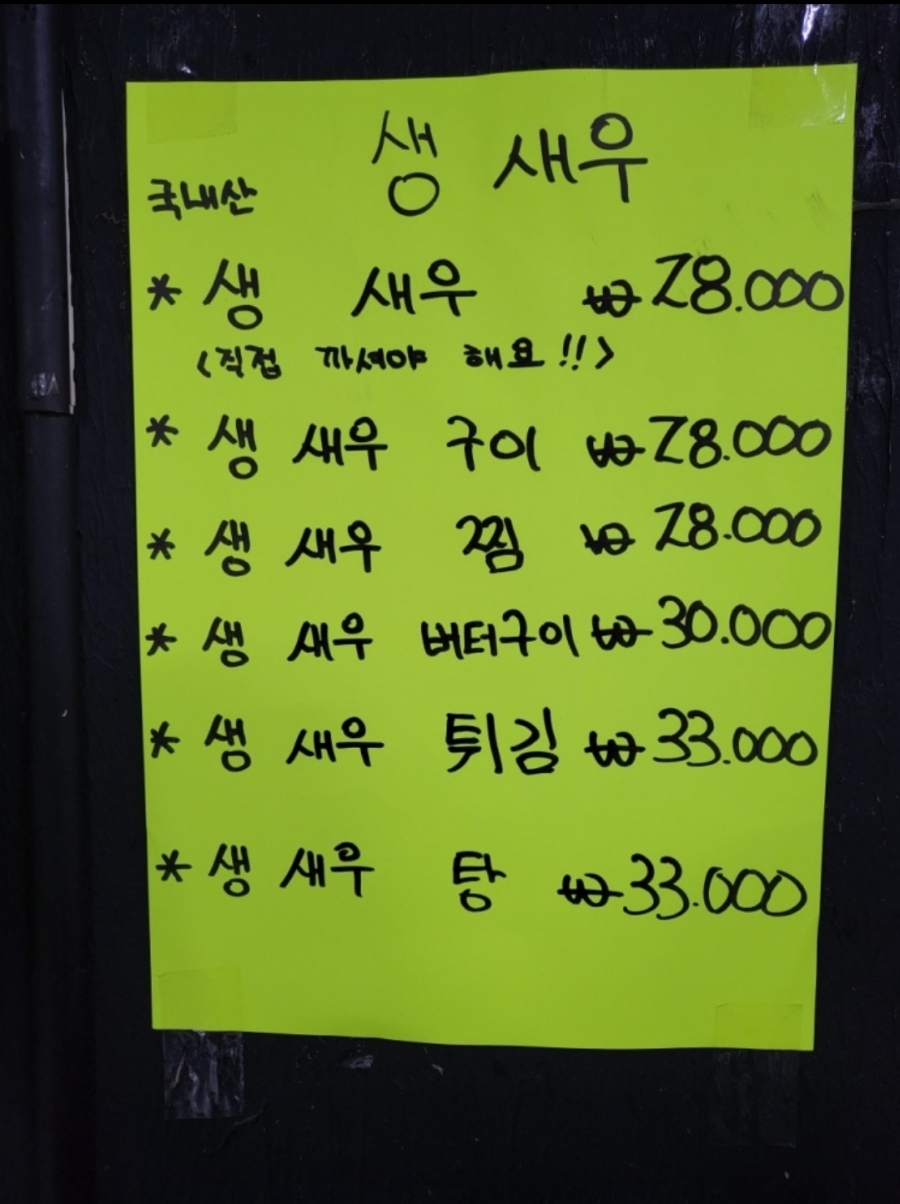 생 새우
국내산
* 생 새우 ₩ 28.000
<직접 까셔야 해요!!>
* 생 새우 구이 ₩ 28.000
* 생 새우 찜 ₩ 28.000
* 생 새우 버터구이 ₩ 30.000
* 생 새우 튀김 ₩ 33.000
* 생 새우 탕 ₩ 33.000